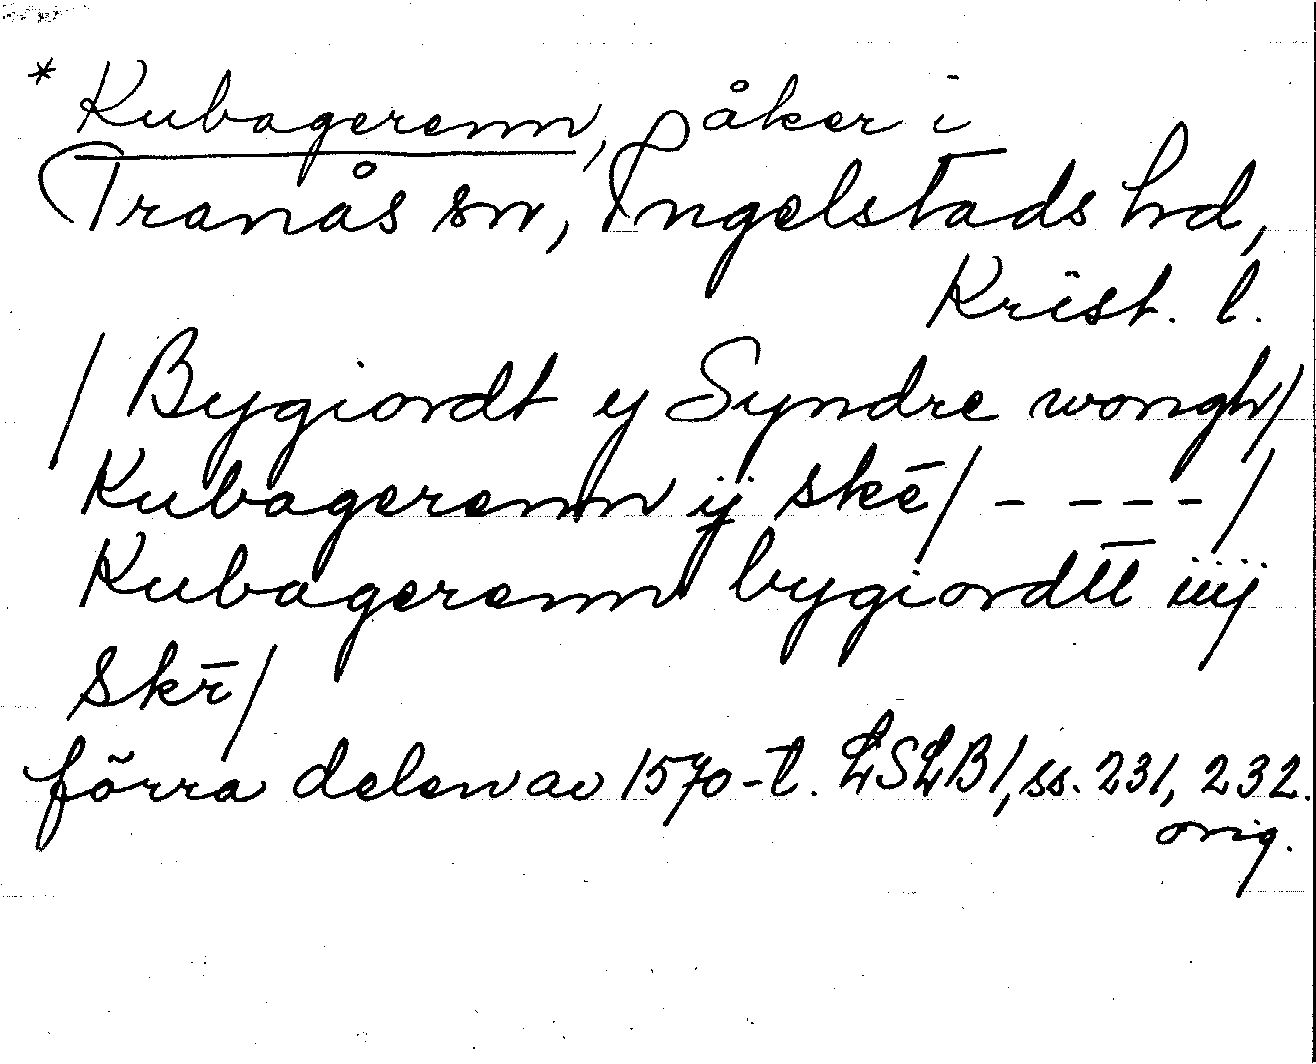 * Kubagerenn, åker i
Tranås sn, Ingelstads hd,
Krist. l.
/ Bygiordt y Syndre wongh/
Kubagerenn ij skē/ - - - - /
Kubagerenn bygiordtt iiij
skr̄/
förra delen av 1570-t. LSLB1, ss. 231, 232.
orig.